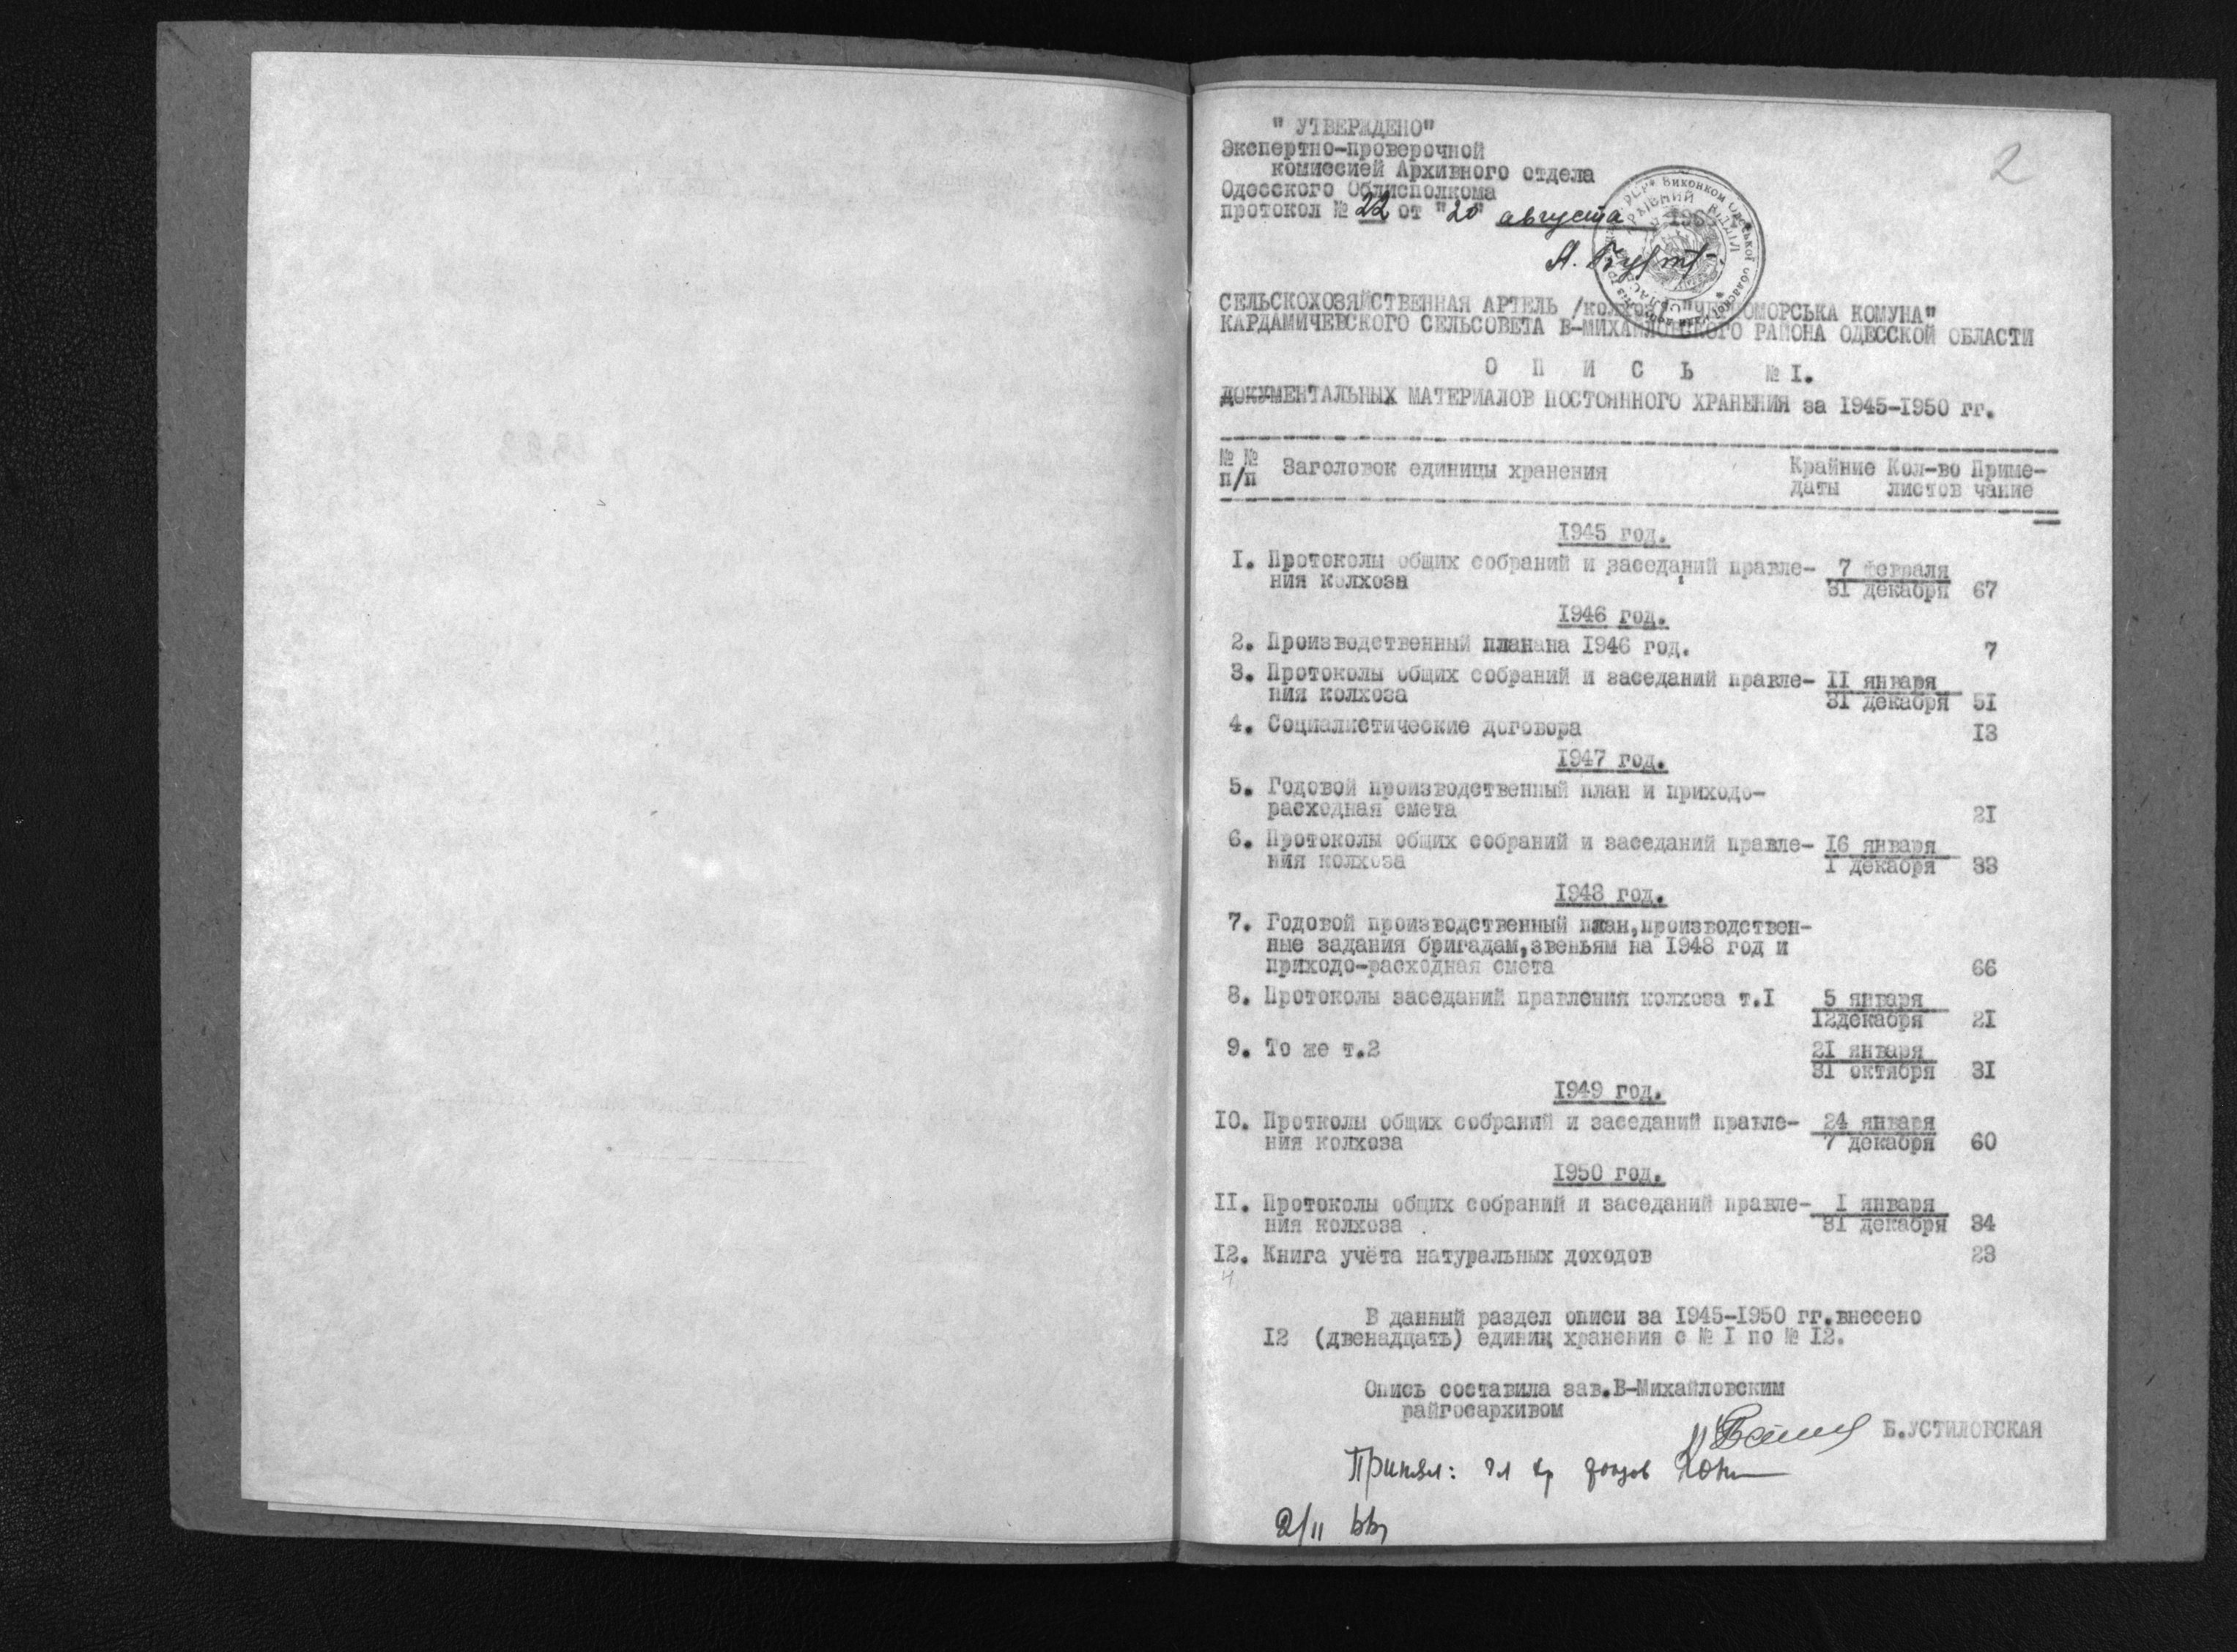 2
" УТВЕРЖДЕНО"
Экспертно-проверочной
комиссией Архивного отдела
Одесского Облисполкома
протокол № 22 от "20" августа
СЕЛЬСКОХОЗЯЙСТВЕННАЯ АРТЕЛЬ /колхоз/ "ЧЕРНОМОРСЬКА КОМУНА"
КАРДАМИЧЕВСКОГО СЕЛЬСОВЕТА В-МИХАЙЛОВСКОГО РАЙОНА ОДЕССКОЙ ОБЛАСТИ
О П И С Ь № I.
ДОКУМЕНТАЛЬНЫХ МАТЕРИАЛОВ ПОСТОЯННОГО ХРАНЕНИЯ за 1945-1950 гг.
№ № Заголовок единицы хранения Крайние Кол-во Приме-
п/п даты листов чание
1945 год.
I. Протоколы общих собраний и заседаний правле- 7 февраля
ния колхоза 31 декабря 67
1946 год.
2. Производственный планана 1946 год. 7
3. Протоколы общих собраний и заседаний правле- II января
ния колхоза 31 декабря 51
4. Социалистические договора 13
1947 год.
5. Годовой производственный план и приходо-
расходная смета 21
6. Протоколы общих собраний и заседаний правле- 16 января
ния колхоза I декабря 33
1948 год.
7. Годовой производственный план,производствен-
ные задания бригадам,звеньям на 1948 год и
приходо-расходная смета 66
8. Протоколы заседаний правления колхоза т.I 5 января
12декабря 21
9. То же т.2 21 января
31 октября 31
1949 год.
10. Протколы общих собраний и заседаний правле- 24 января
ния колхоза 7 декабря 60
1950 год.
II. Протоколы общих собраний и заседаний правле- I января
ния колхоза 31 декабря 34
12. Книга учёта натуральных доходов 23
В данный раздел описи за 1945-1950 гг.внесено
12 (двенадцать) единиц хранения с № I по № 12.
Опись составила зав.В-Михайловским
райгосархивом
Б.УСТИЛОВСКАЯ
Принял: